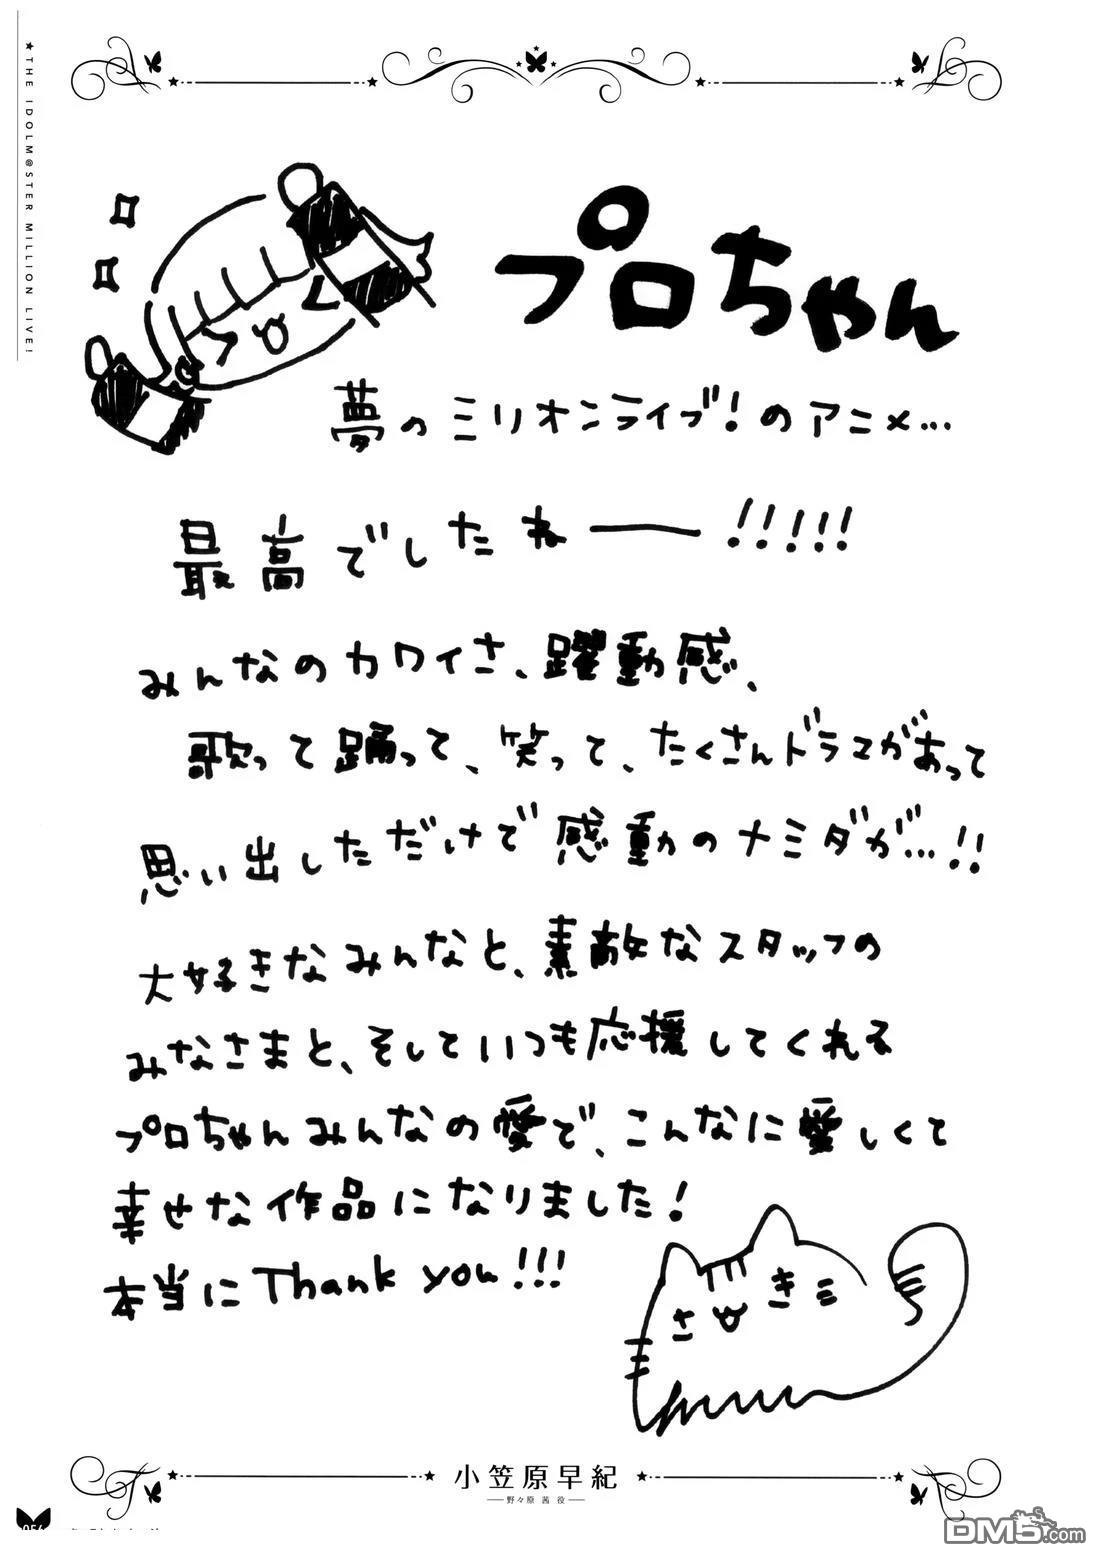 ★THE IDOLM@STER MILLION LIVE!
プロちゃん
夢のミリオンライブ!のアニメ…
最高でしたねー!!!!!
みんなのカワイさ、躍動感、
歌って踊って、笑って、たくさんドラマがあって
思い出しただけで感動のナミダが…!!
大好きなみんなと、素敵なスタッフの
みなさまと、そしていつも応援してくれる
プロちゃんみんなの愛で、こんなに愛しくて
幸せな作品になりました!
本当にThank you!!!
さき
小笠原早紀
野々原 茜 役
DM5.com